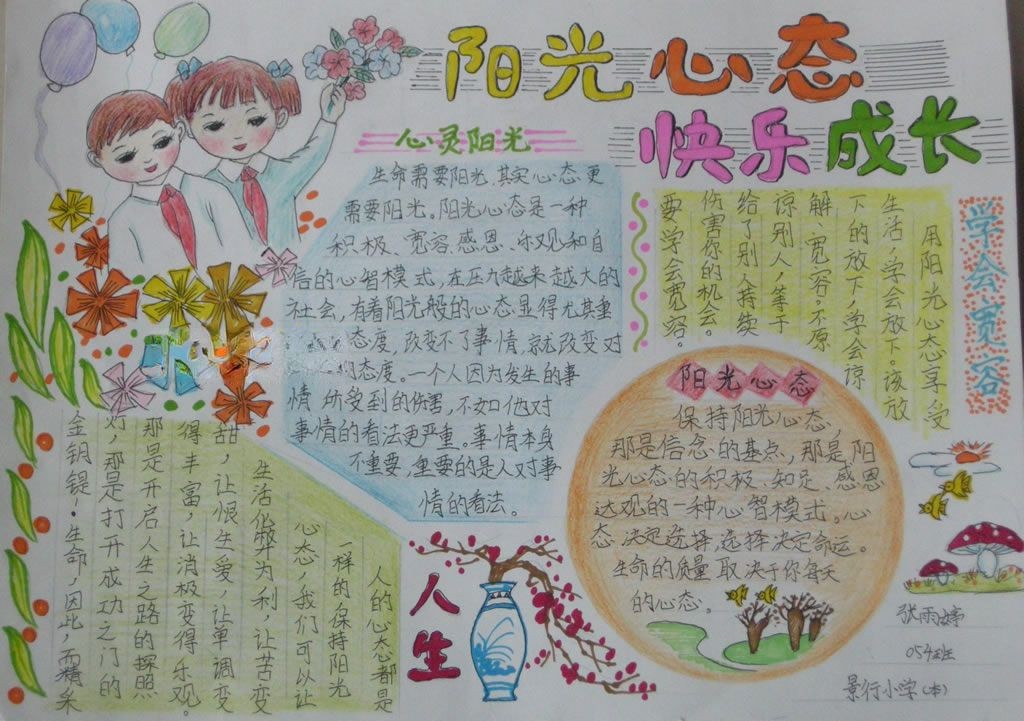 阳光心态
快乐成长
心灵阳光
生命需要阳光,其实心态更
需要阳光。阳光心态是一种
积极、宽容、感恩、乐观和自
信的心智模式,在压力越来越大的
社会,有着阳光般的心态显得尤其重
态度,改变不了事情,就改变对
的态度。一个人因为发生的事
情所受到的伤害,不如他对
事情的看法更严重。事情本身
不重要,重要的是人对事
情的看法。
学会宽容
用阳光心态享受
生活,学会放下。该放
下的放下,学会谅
解、宽容。不原
谅别人,等于
给了别人持续
伤害你的机会。
要学会宽容。
阳光心态
保持阳光心态,
那是信念的基点,那是阳
光心态的积极、知足、感恩
达观的一种心智模式。心
态决定选择,选择决定命运。
生命的质量取决于你每天
的心态。
人生
人的心态都是
一样的保持阳光
心态,我们可以让
生活化弊为利,让苦变
甜,让恨生爱 让单调变
得丰富,让消极变得乐观。
那是开启人生之路的探照
灯,那是打开成功之门的
金钥 。生命,因此,而精采
张雨婷
054班
景行小学(本)